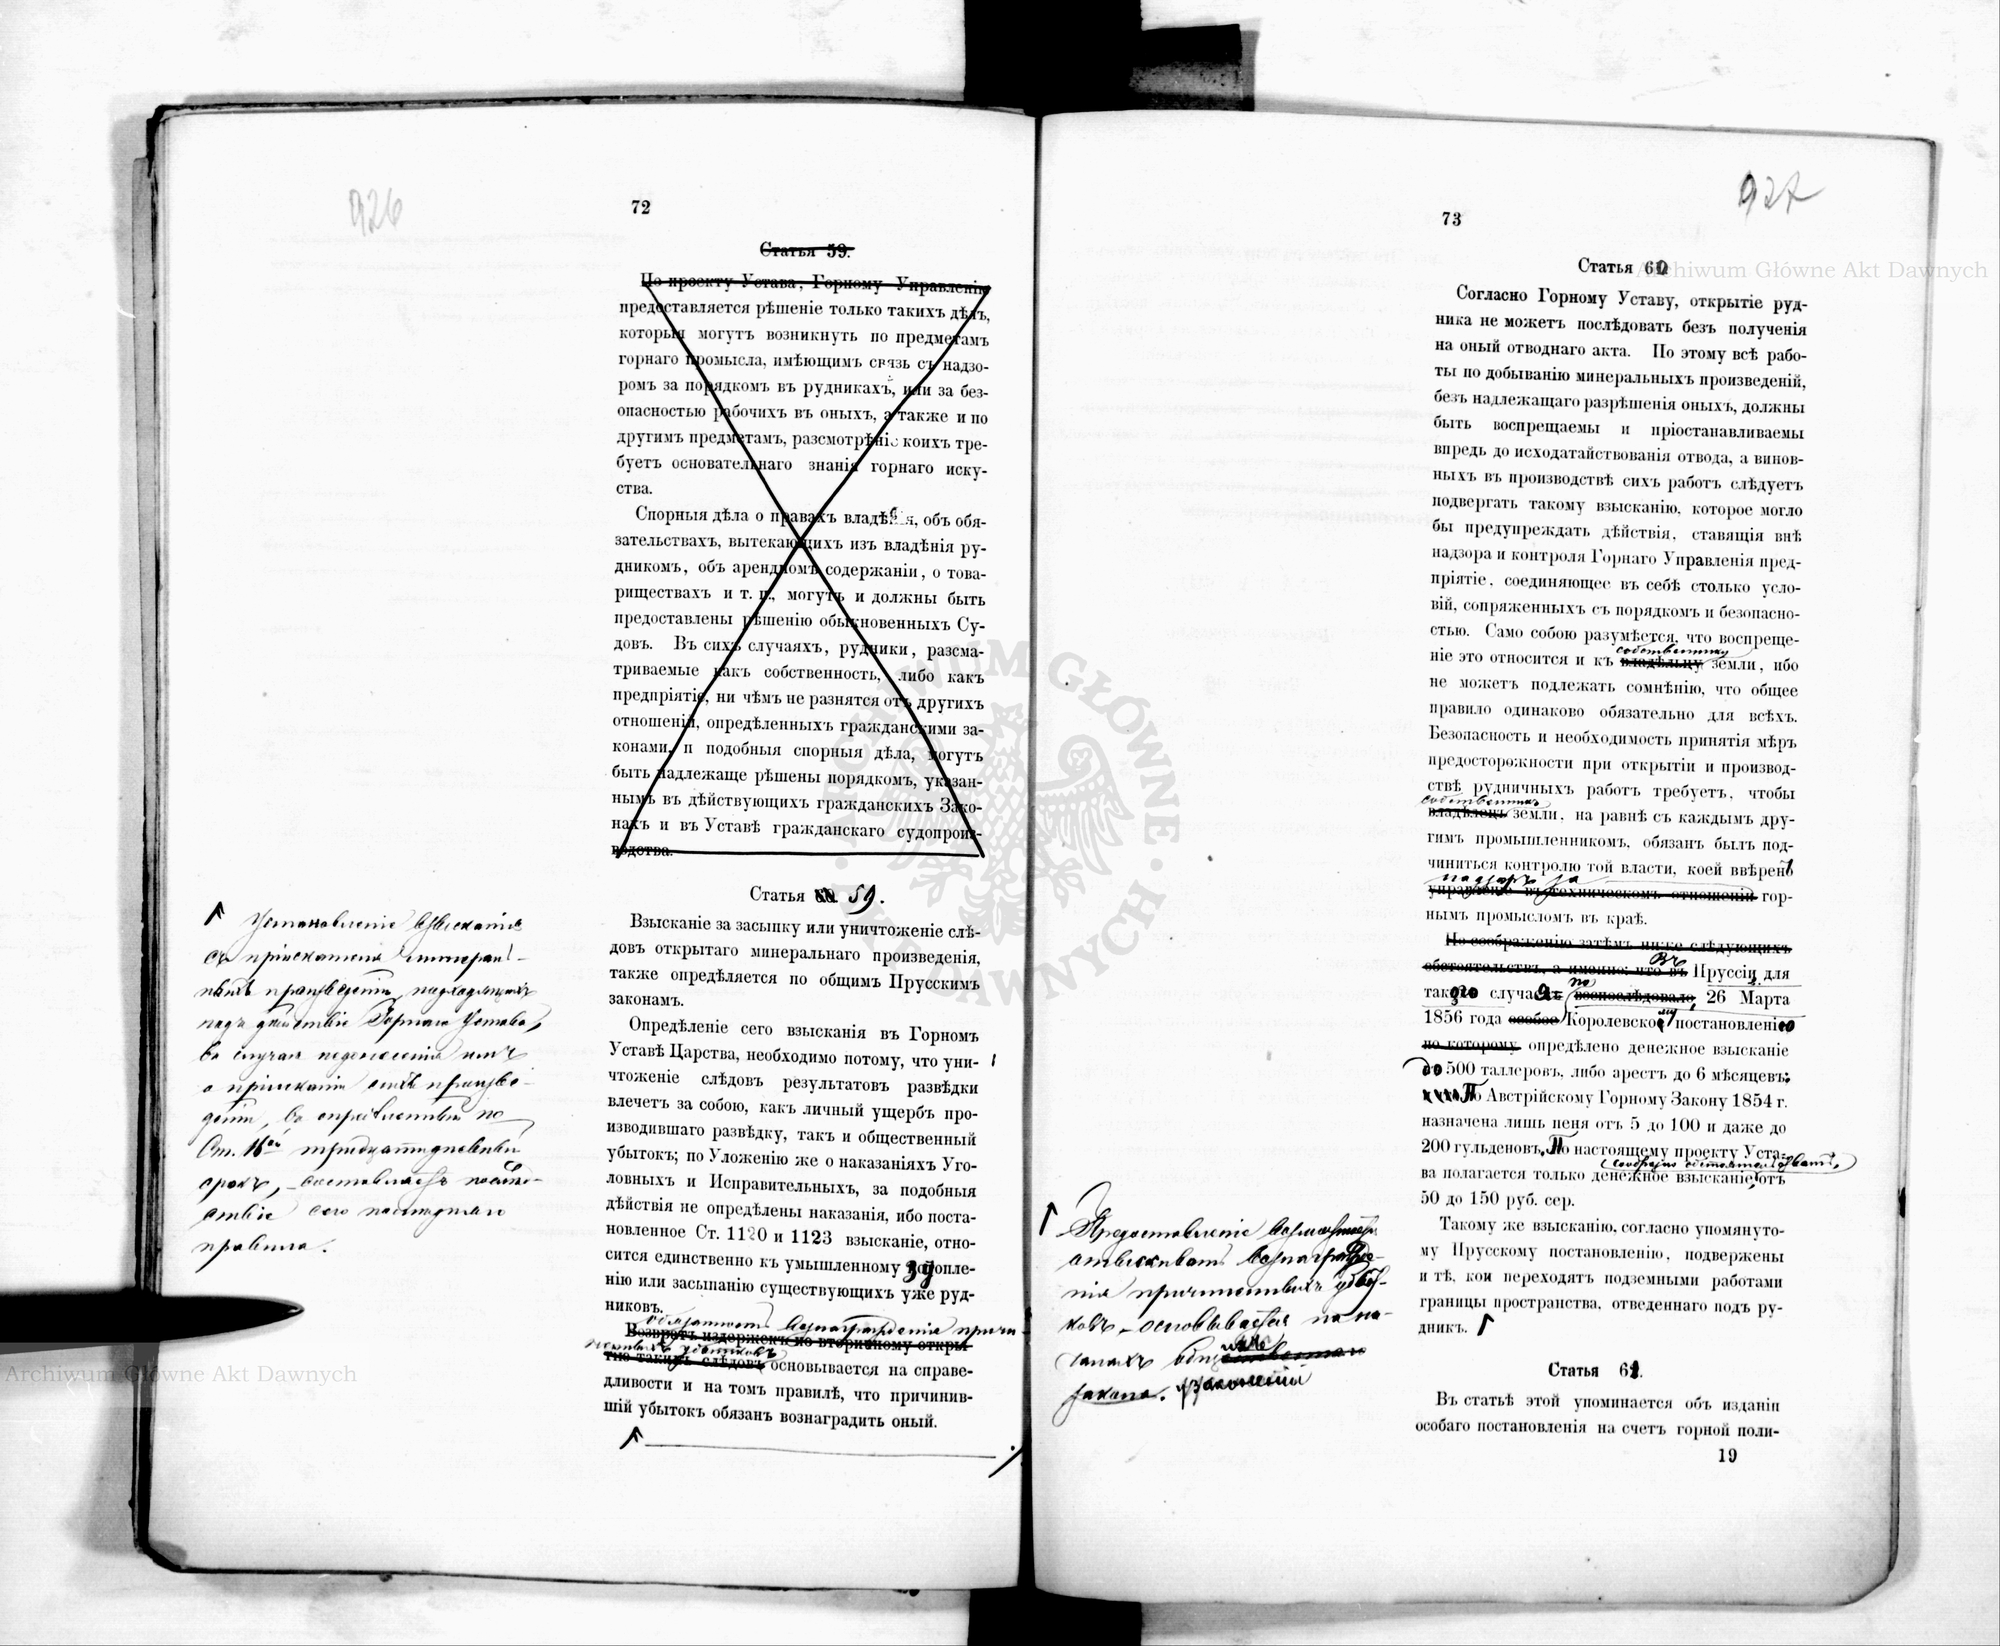 926
72
Статья 59.
По проекту Устава, Горному Управленію
предоставляется рѣшеніе только такихъ дѣлъ,
которыя могутъ возникнуть по предметамъ
горнаго промысла, имѣющимъ связь съ надзо-
ромъ за порядкомъ въ рудникахъ, или за без-
опасностью рабочихъ въ оныхъ, а также и по
другимъ предметамъ, разсмотрѣніе коихъ тре-
буетъ основательнаго знанія горнаго иску-
ства.
Спорныя дѣла о правахъ владѣнія, объ обя-
зательствахъ, вытекающихъ изъ владѣнія ру-
дникомъ, объ арендномъ содержаніи, о това-
риществахъ и т. п., могутъ и должны быть
предоставлены рѣшенію обыкновенныхъ Су-
довъ. Въ сихъ случаяхъ, рудники, разсма-
триваемые какъ собственность, либо какъ
предпріятіе, ни чѣмъ не разнятся отъ другихъ
отношеній, опредѣленныхъ гражданскими за-
конами, и подобныя спорныя дѣла, могутъ
быть надлежаще рѣшены порядкомъ, указан-
нымъ въ дѣйствующихъ гражданскихъ Зако-
нахъ и въ Уставѣ гражданскаго судопроиз-
водства.
Статья 60. 59.
Взысканіе за засыпку или уничтоженіе слѣ-
довъ открытаго минеральнаго произведенія,
также опредѣляется по общимъ Прусскимъ
законамъ.
Опредѣленіе сего взысканія въ Горномъ
Уставѣ Царства, необходимо потому, что уни-
чтоженіе слѣдовъ результатовъ развѣдки
влечетъ за собою, какъ личный ущербъ про-
изводившаго развѣдку, такъ и общественный
убытокъ; по Уложенію же о наказаніяхъ Уго-
ловныхъ и Исправительныхъ, за подобныя
дѣйствія не опредѣлены наказанія, ибо поста-
новленное Ст. 1120 и 1123 взысканіе, отно-
сится единственно къ умышленному затопле-
нію или засыпанію существующихъ уже руд-
никовъ.
обязанность вознагражденія причи-
Возвратъ издержекъ по вторичному откры-
ненныхъ убытковъ
тію такихъ слѣдовъ основывается на справе-
дливости и на томъ правилѣ, что причинив-
шій убытокъ обязанъ вознаградить оный.
Установленіе взысканія
съ пріискателя минераль-
ныхъ произведеній, подходящихъ
подъ дѣйствіе Горнаго Устава,
въ случаѣ недонесенія имъ
о пріисканіи сихъ произве-
деній, въ опредѣленный по
Ст. 16ой тридцатидневный
срокъ, составляетъ послѣд-
ствіе сего послѣдняго
правила.
927
73
Статья 60
Согласно Горному Уставу, открытіе руд-
ника не можетъ послѣдовать безъ полученія
на оный отводнаго акта. По этому всѣ рабо-
ты по добыванію минеральныхъ произведеній,
безъ надлежащаго разрѣшенія оныхъ, должны
быть воспрещаемы и пріостанавливаемы
впредь до исходатайствованія отвода, а винов-
ныхъ въ производствѣ сихъ работъ слѣдуетъ
подвергать такому взысканію, которое могло
бы предупреждать дѣйствія, ставящія внѣ
надзора и контроля Горнаго Управленія пред-
пріятіе, соединяющее въ себѣ столько усло-
вій, сопряженныхъ съ порядкомъ и безопасно-
стью. Само собою разумѣется, что воспреще-
собственнику
ніе это относится и къ владѣльцу земли, ибо
не можетъ подлежать сомнѣнію, что общее
правило одинаково обязательно для всѣхъ.
Безопасность и необходимость принятія мѣръ
предосторожности при открытіи и производ-
ствѣ рудничныхъ работъ требуетъ, чтобы
собственникъ
владѣлецъ земли, на равнѣ съ каждымъ дру-
гимъ промышленникомъ, обязанъ былъ под-
чиниться контролю той власти, коей ввѣренъ
надзоръ за
управленіе въ техническомъ отношеніи гор-
нымъ промысломъ въ краѣ.
По соображенію затѣмъ ниже слѣдующихъ
Въ
обстоятельствъ, а именно: что въ Пруссіи, для
по
такого случая воспослѣдовало, 26 Марта
1856 года особое Королевскому постановленію
по которому опредѣлено денежное взысканіе
до 500 таллеровъ, либо арестъ до 6 мѣсяцевъ.
По Австрійскому Горному Закону 1854 г.
назначена лишь пеня отъ 5 до 100 и даже до
200 гульденовъ. По настоящему проекту Уста-
сообразно обстоятельствамъ,
ва полагается только денежное взысканіе, отъ
50 до 150 руб. сер.
Такому же взысканію, согласно упомянуто-
му Прусскому постановленію, подвержены
и тѣ, кои переходятъ подземными работами
границы пространства, отведеннаго подъ ру-
дникъ.
Статья 61.
Въ статьѣ этой упоминается объ изданіи
особаго постановленія на счетъ горной поли-
19
Предоставленіе
отыскивать вознагражде-
нія причиненныхъ убыт-
ковъ основывается на на-
чалахъ
закона. узаконенія
Archiwum Główne Akt Dawnych
Archiwum Główne Akt Dawnych
ARCHIWUM GŁÓWNE AKT DAWNYCH